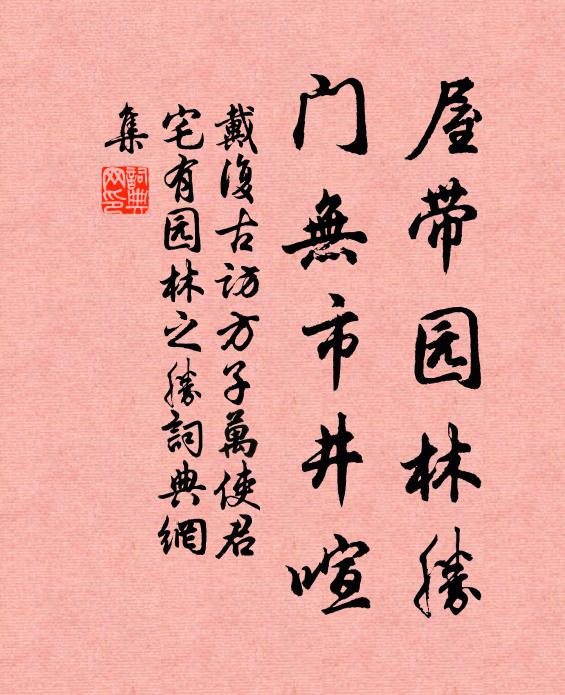 屋带园林勝
门無市井喧
戴復古访方子萬使君
宅有园林之勝詞典網
集
詞典网印